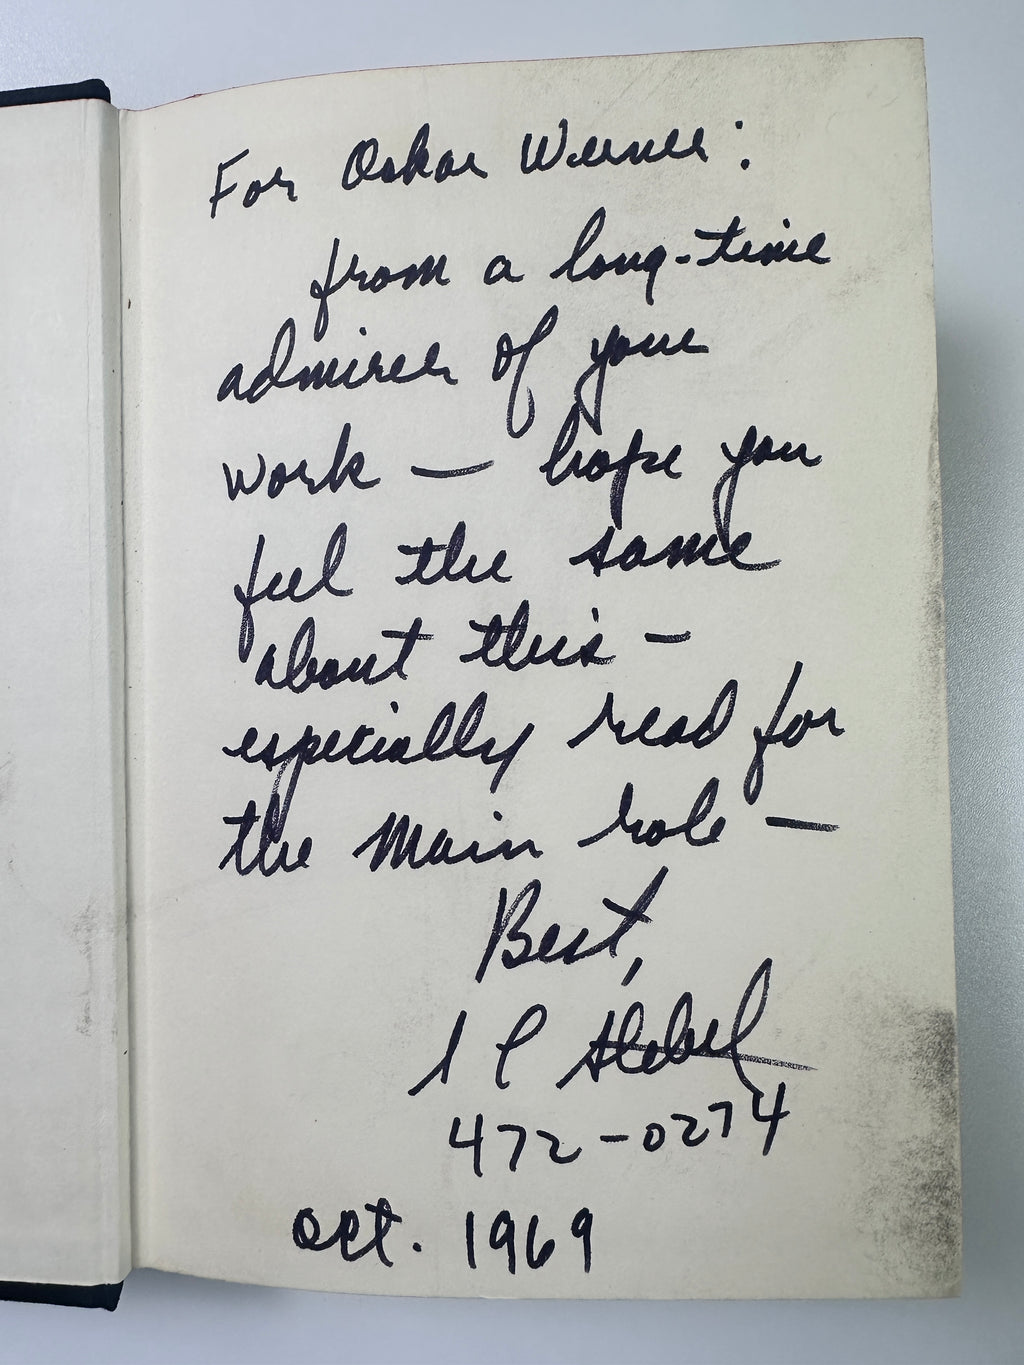 For Oskar Werner:
from a long-time
admirer of your
work — hope you
feel the same
about this —
especially read for
the main role —
Best,
S L Stebel
472-0274
Oct. 1969